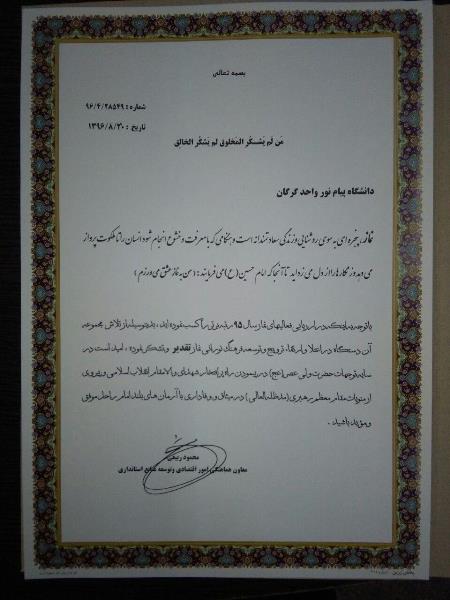 بسمه تعالی
شماره : ۹۶/۴/۲۸۵۴۹
تاریخ : ۱۳۹۶/۸/۳۰
مَن لَم یَشکُر المَخلوق لَم یَشکُر الخالِق
دانشگاه پیام نور واحد گرگان
نماز، پنجره ای به سوی روشنایی و زندگی سعادتمندانه است و هنگامی که با معرفت و خشوع انجام شود انسان را تا ملکوت پرواز
می دهد و زنگارها را از دل می زداید تا آنجا که امام حسین (ع) می فرمایند : (من به نماز عشق می ورزم )
با توجه به اینکه در ارزیابی فعالیتهای نماز سال ۹۵ رتبه برتر را کسب نموده اید ، بدینوسیله از تلاش مجموعه
آن دستگاه در اعتلا و ارتقاء ترویج و توسعه فرهنگ نورانی نماز تقدیر و تشکر می نماید . امید است در
سایه توجهات حضرت ولی عصر (عج) در پیمودن راه پر افتخار شهدای والامقام انقلاب اسلامی و پیروی
از منویات مقام معظم رهبری (مدظله العالی) در میثاق و وفاداری با آرمان های بلند امام راحل موفق
و موید باشید .
محمود ربیعی
معاون هماهنگی امور اقتصادی و توسعه منابع استانداری